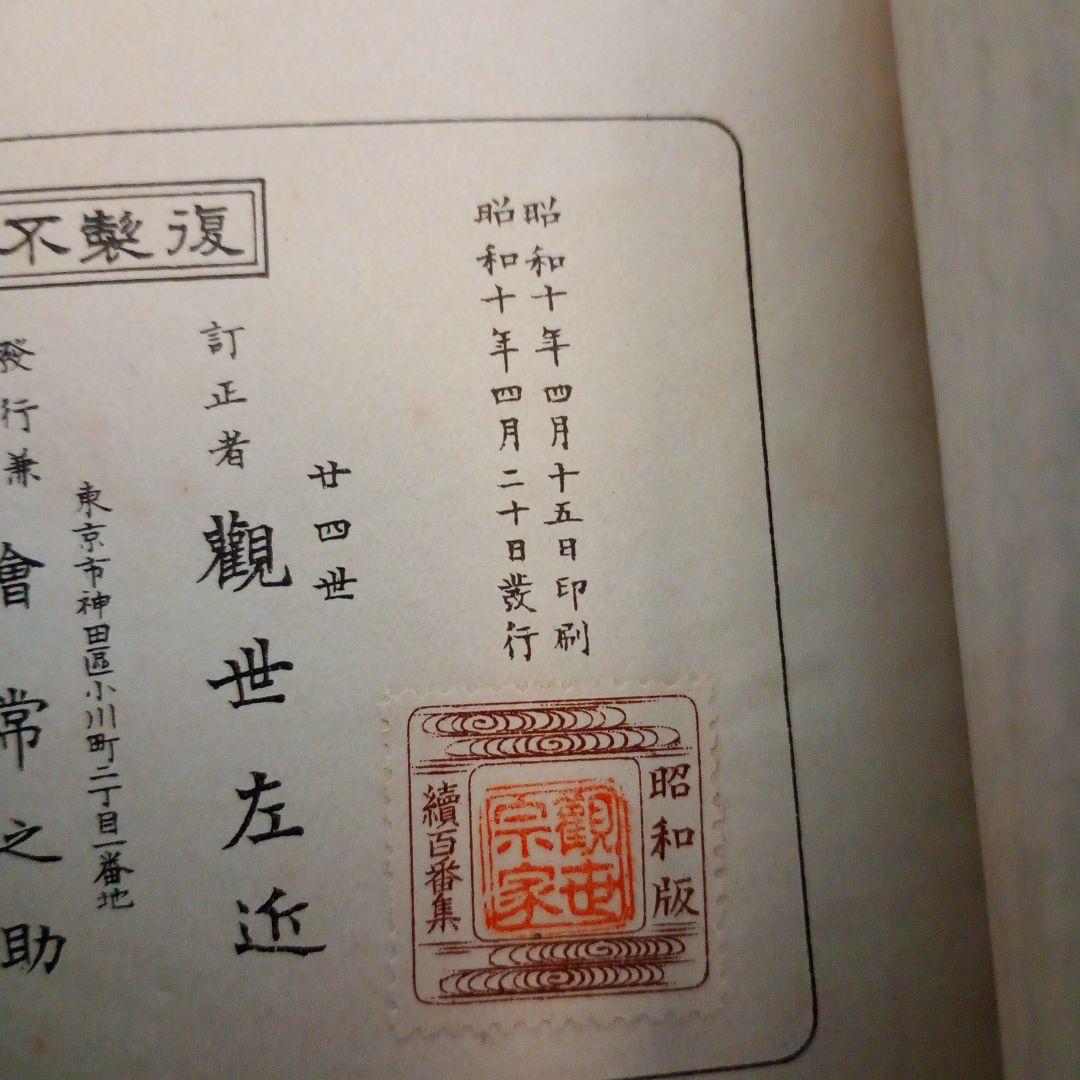 昭和十年四月十五日印刷
昭和十年四月二十日發行
昭和版
觀世
宗家
續百番集
復製不
廿四世
訂正者 觀世左近
東京市神田區小川町二丁目一番地
發行兼 會常之助